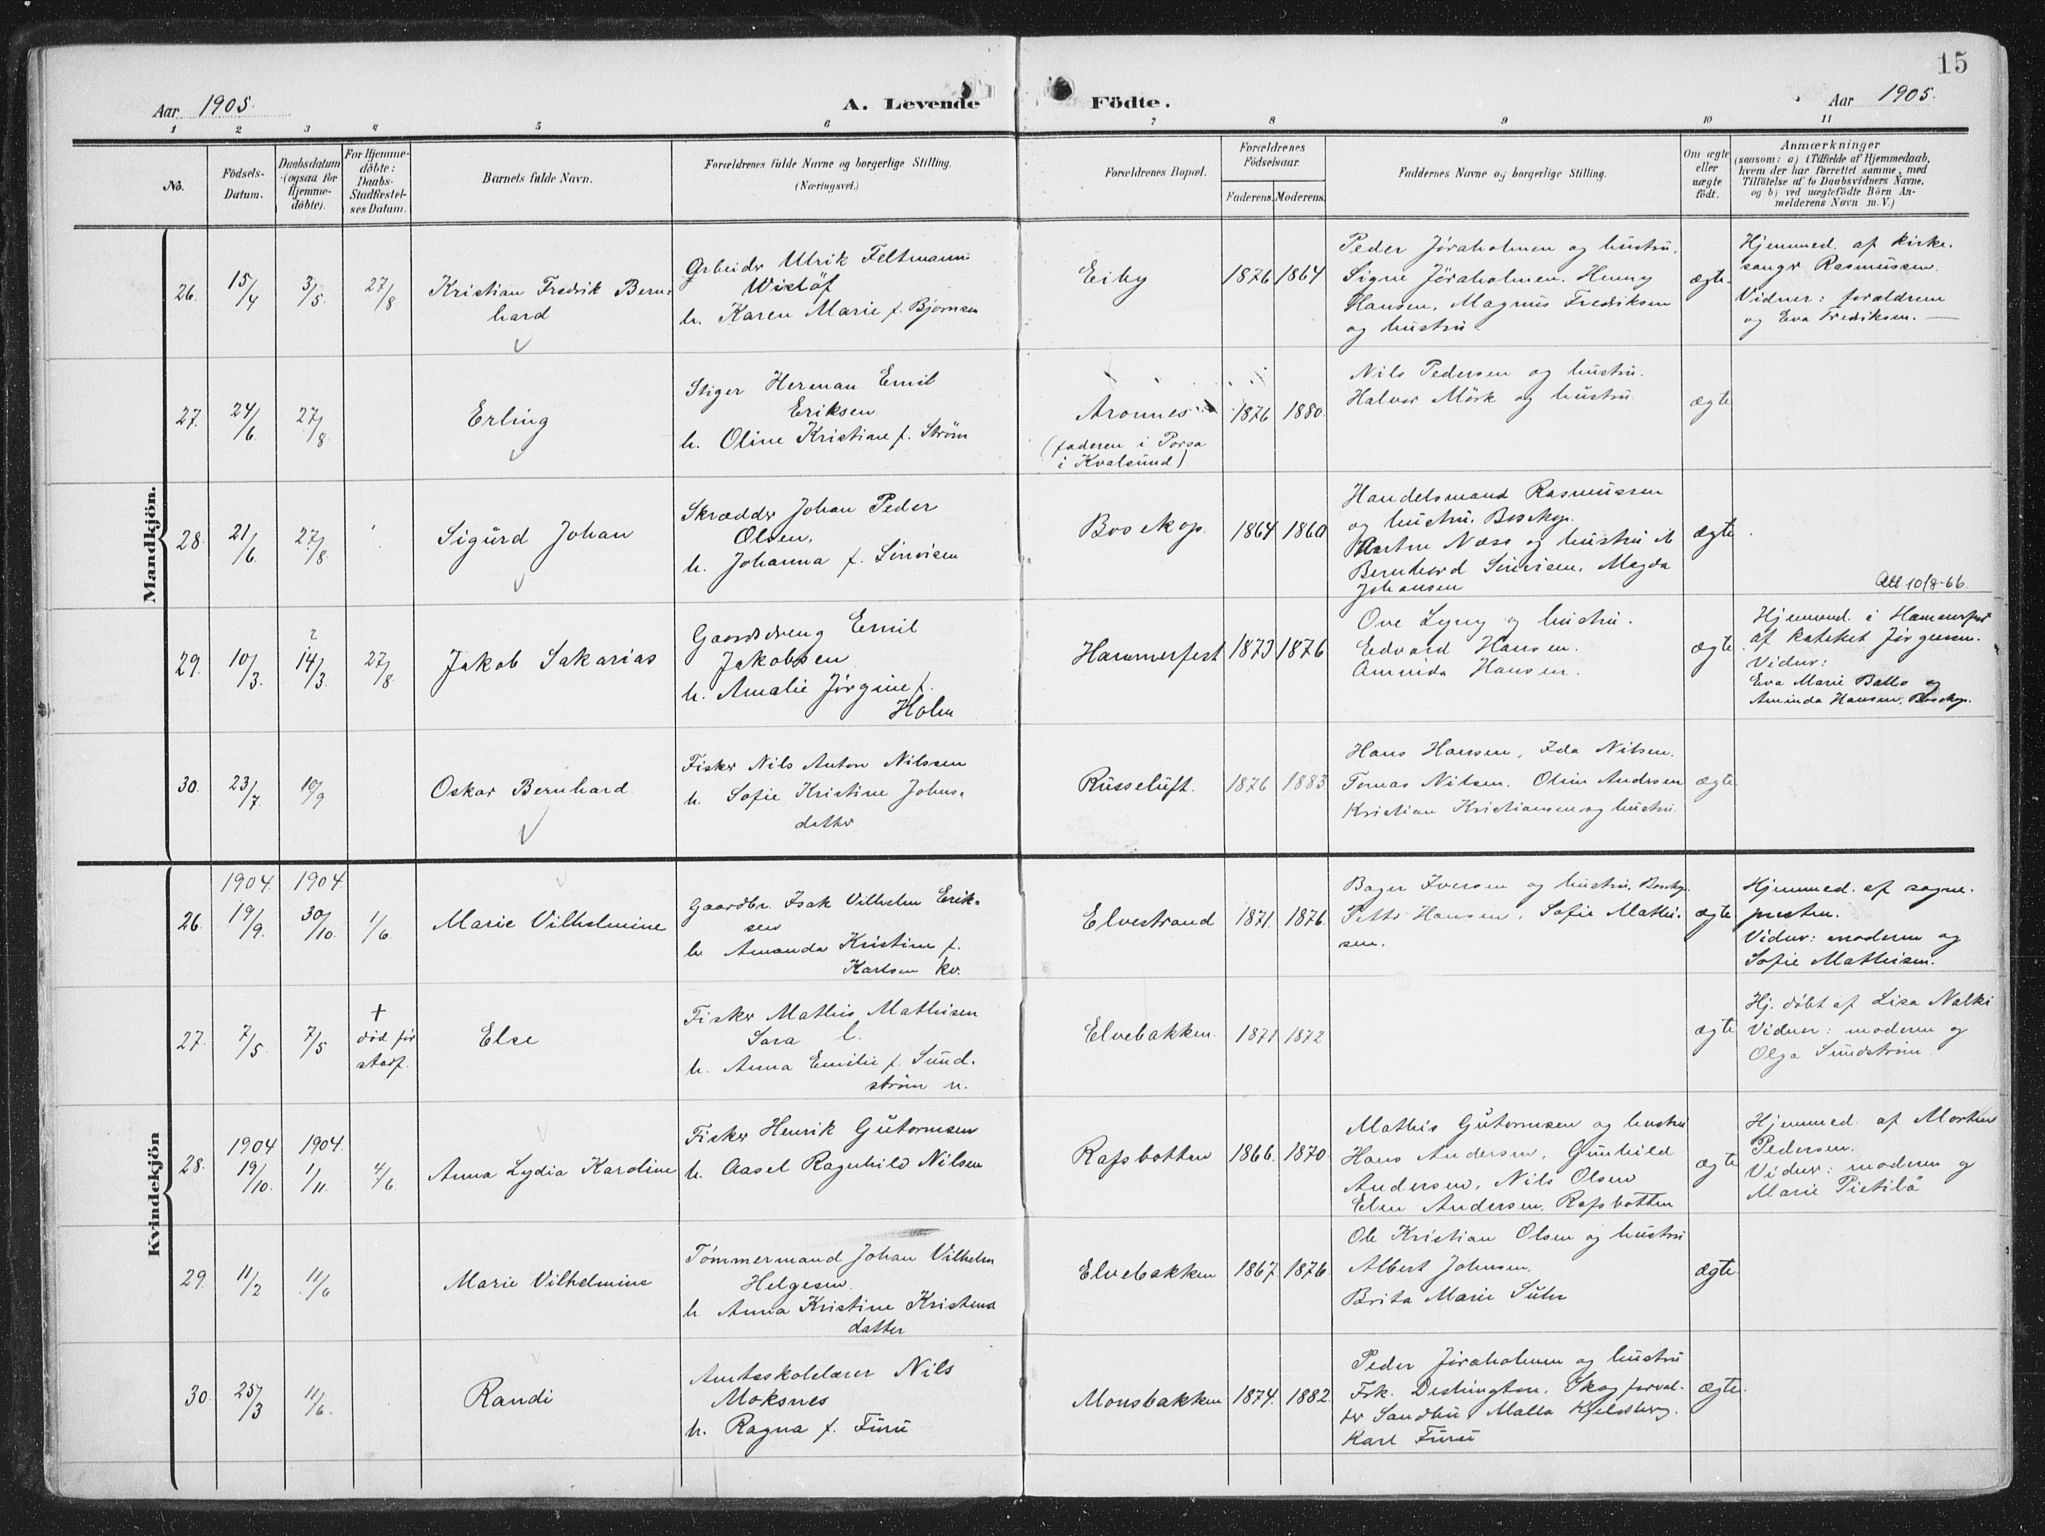 15
Aar 1905.
A. Levende
Födte.
Aar 1905.
1 2 3 4 5 6 7 8 9 10 11
No.
Födsels-
Datum.
Daabsdatum
(ogsaa for
Hjemme-
döbte).
For Hjemme-
döbte:
Daabs-
Stadfæstel-
ses Datum.
Barnets fulde Navn.
Forældrenes fulde Navne og borgerlige Stilling.
(Næringsvei.)
Forældrenes Bopæl.
Forældrenes
Födselsaar.
Faderens. Moderens.
Faddernes Navne og borgerlige Stilling.
Om ægte
eller
uægte
födt.
Anmærkninger
(saasom: a) i Tilfælde af Hjemmedaab,
hvem der har forrettet samme, med
Tilföielse af to Daabsvidners Navne,
og b) ved uægtefödte Börn An-
melderens Navn m. V.)
Mandkjön.
26. 15/4 3/5 27/8
Kristian Fredrik Bern-
hard
Arbeider Ulrik Feltmann
Wisløf
h. Karen Marie f. Bjørnsen
Eiby 1876 1864
Peder Jøraholmen og hustru.
Signe Jøraholmen. Henny
Hansen, Magnus Fredriksen
og hustru.
ægte
Hjemmed. af kirke-
sangr Rasmussen.
Vidner: forældrene
og Eva Fredriksen.
27. 24/6 27/8
Erling
Stiger Herman Emil
Eriksen
h. Oline Kristine f. Strøm
Aronnes
(faderen i Porsa
i Kvalsund)
1876 1880
Nils Pedersen og hustru.
Halvor Mörk og hustru.
ægte
28. 21/6 27/8
Sigurd Johan
Skrædder Johan Peder
Olsen,
h. Johanna f. Sinvisen
Bosekop. 1864 1860
Handelsmand Rasmussen
og hustru. Bosekop.
Næss og hustru
Bernhard Sinvisen, Magda
Johansen
ægte
Att 10/8-66
29. 10/3. ? 14/3 27/8
Jakob Sakarias
Gaardsdreng Emil
Jakobsen
h. Amalie Jørgine f.
Holm
Hammerfest 1873 1876
Ove Lyng og hustru.
Edvard Hansen.
Aminda Hansen.
ægte
Hjemmed. i Hammerfest
af kateket Jørgensen.
Vidner:
Eva Marie Ballo og
Aminda Hansen, Bosekop.
30. 23/7 10/9
Oskar Bernhard
Fisker Nils Anton Nilssen
h. Sofie Kristine Johns-
datter
Russeluft. 1876 1883
Hans Hansen, Ida Nilsen.
Tomas Nilsen. Oline Andersen
Kristian Kristiansen og hustru.
ægte
Kvindekjön
1904 1904
26. 19/9. 30/10. 1/6
Marie Vilhelmine
Gaardbr. Isak Vilhelm Erik-
sen
h. Amanda Kristine f.
Karlsen kv.
Elvestrand 1871. 1876.
Bager Iversen og hustru. Bosekop.
Petter Hansen, Sofie Mathi-
sen.
ægte
Hjemmed. af sogne-
presten.
Vidner: moderen og
Sofie Mathisen.
27. 7/5 7/5
+
død før
stadf.
Else
Fisker Mathis Mathisen
Sara l.
h. Anna Emilie f. Sund-
strøm n.
Elvebakken. 1871 1872
ægte
Hj. døbt af Lisa Nalki
Vidner: moderen og
Olga Sundstrøm.
1904. 1904.
28. 19/10. 1/11. 4/6
Anna Lydia Karoline
Fisker Henrik Gutormsen
h. Aasel Ragnhild Nilsen
Rafsbotten 1866. 1870.
Mathis Gutormsen og hustru
Hans Andersen, Gunhild
Andersen, Nils Olsen
Elen Andersen, Rafsbotten
ægte
Hjemmed. af Morten
Pedersen.
Vidner: moderen og
Marie Pietilä
29. 11/2 11/6
Marie Vilhelmine
Tømmermand Johan Vilhelm
Helgesen
h. Anna Kristine Kristens
datter
Elvebakken 1867. 1876.
Ole Kristian Olsen og hustru
Albert Johnsen.
Brita Marie Suhr
ægte
30. 25/3 11/6.
Randi
Amtsskolelærer Nils
Moksnes
h. Ragna f. Furu
Monsbakken 1874. 1882.
Peder Jøraholmen og hustru
Frk. Deshington. Skogforval-
ter Sandbu, Malla Kjeldsberg.
Karl Furu
ægte.